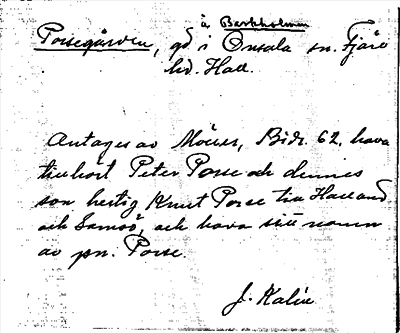 à Backholmen
Porsegården, gd i Onsala sn. Fjäre
hd. Hall.
Antages av Möller, Bidr. 62, hava
tillhört Peter Porse och dennes
son hertig Knut Porse till Halland
och Samsö, och hava sitt namn
av pn. Porse.
J. Kalén